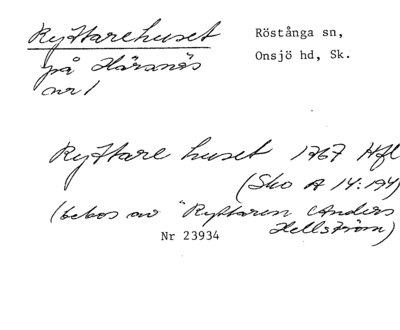 Ryttarehuset
på Härsnäs
nr 1
Röstånga sn,
Onsjö hd, Sk.
Ryttare huset 1767 Hfl
(Sko A 14:194)
(bebos av "Ryttaren Anders
Hellström)
Nr 23934